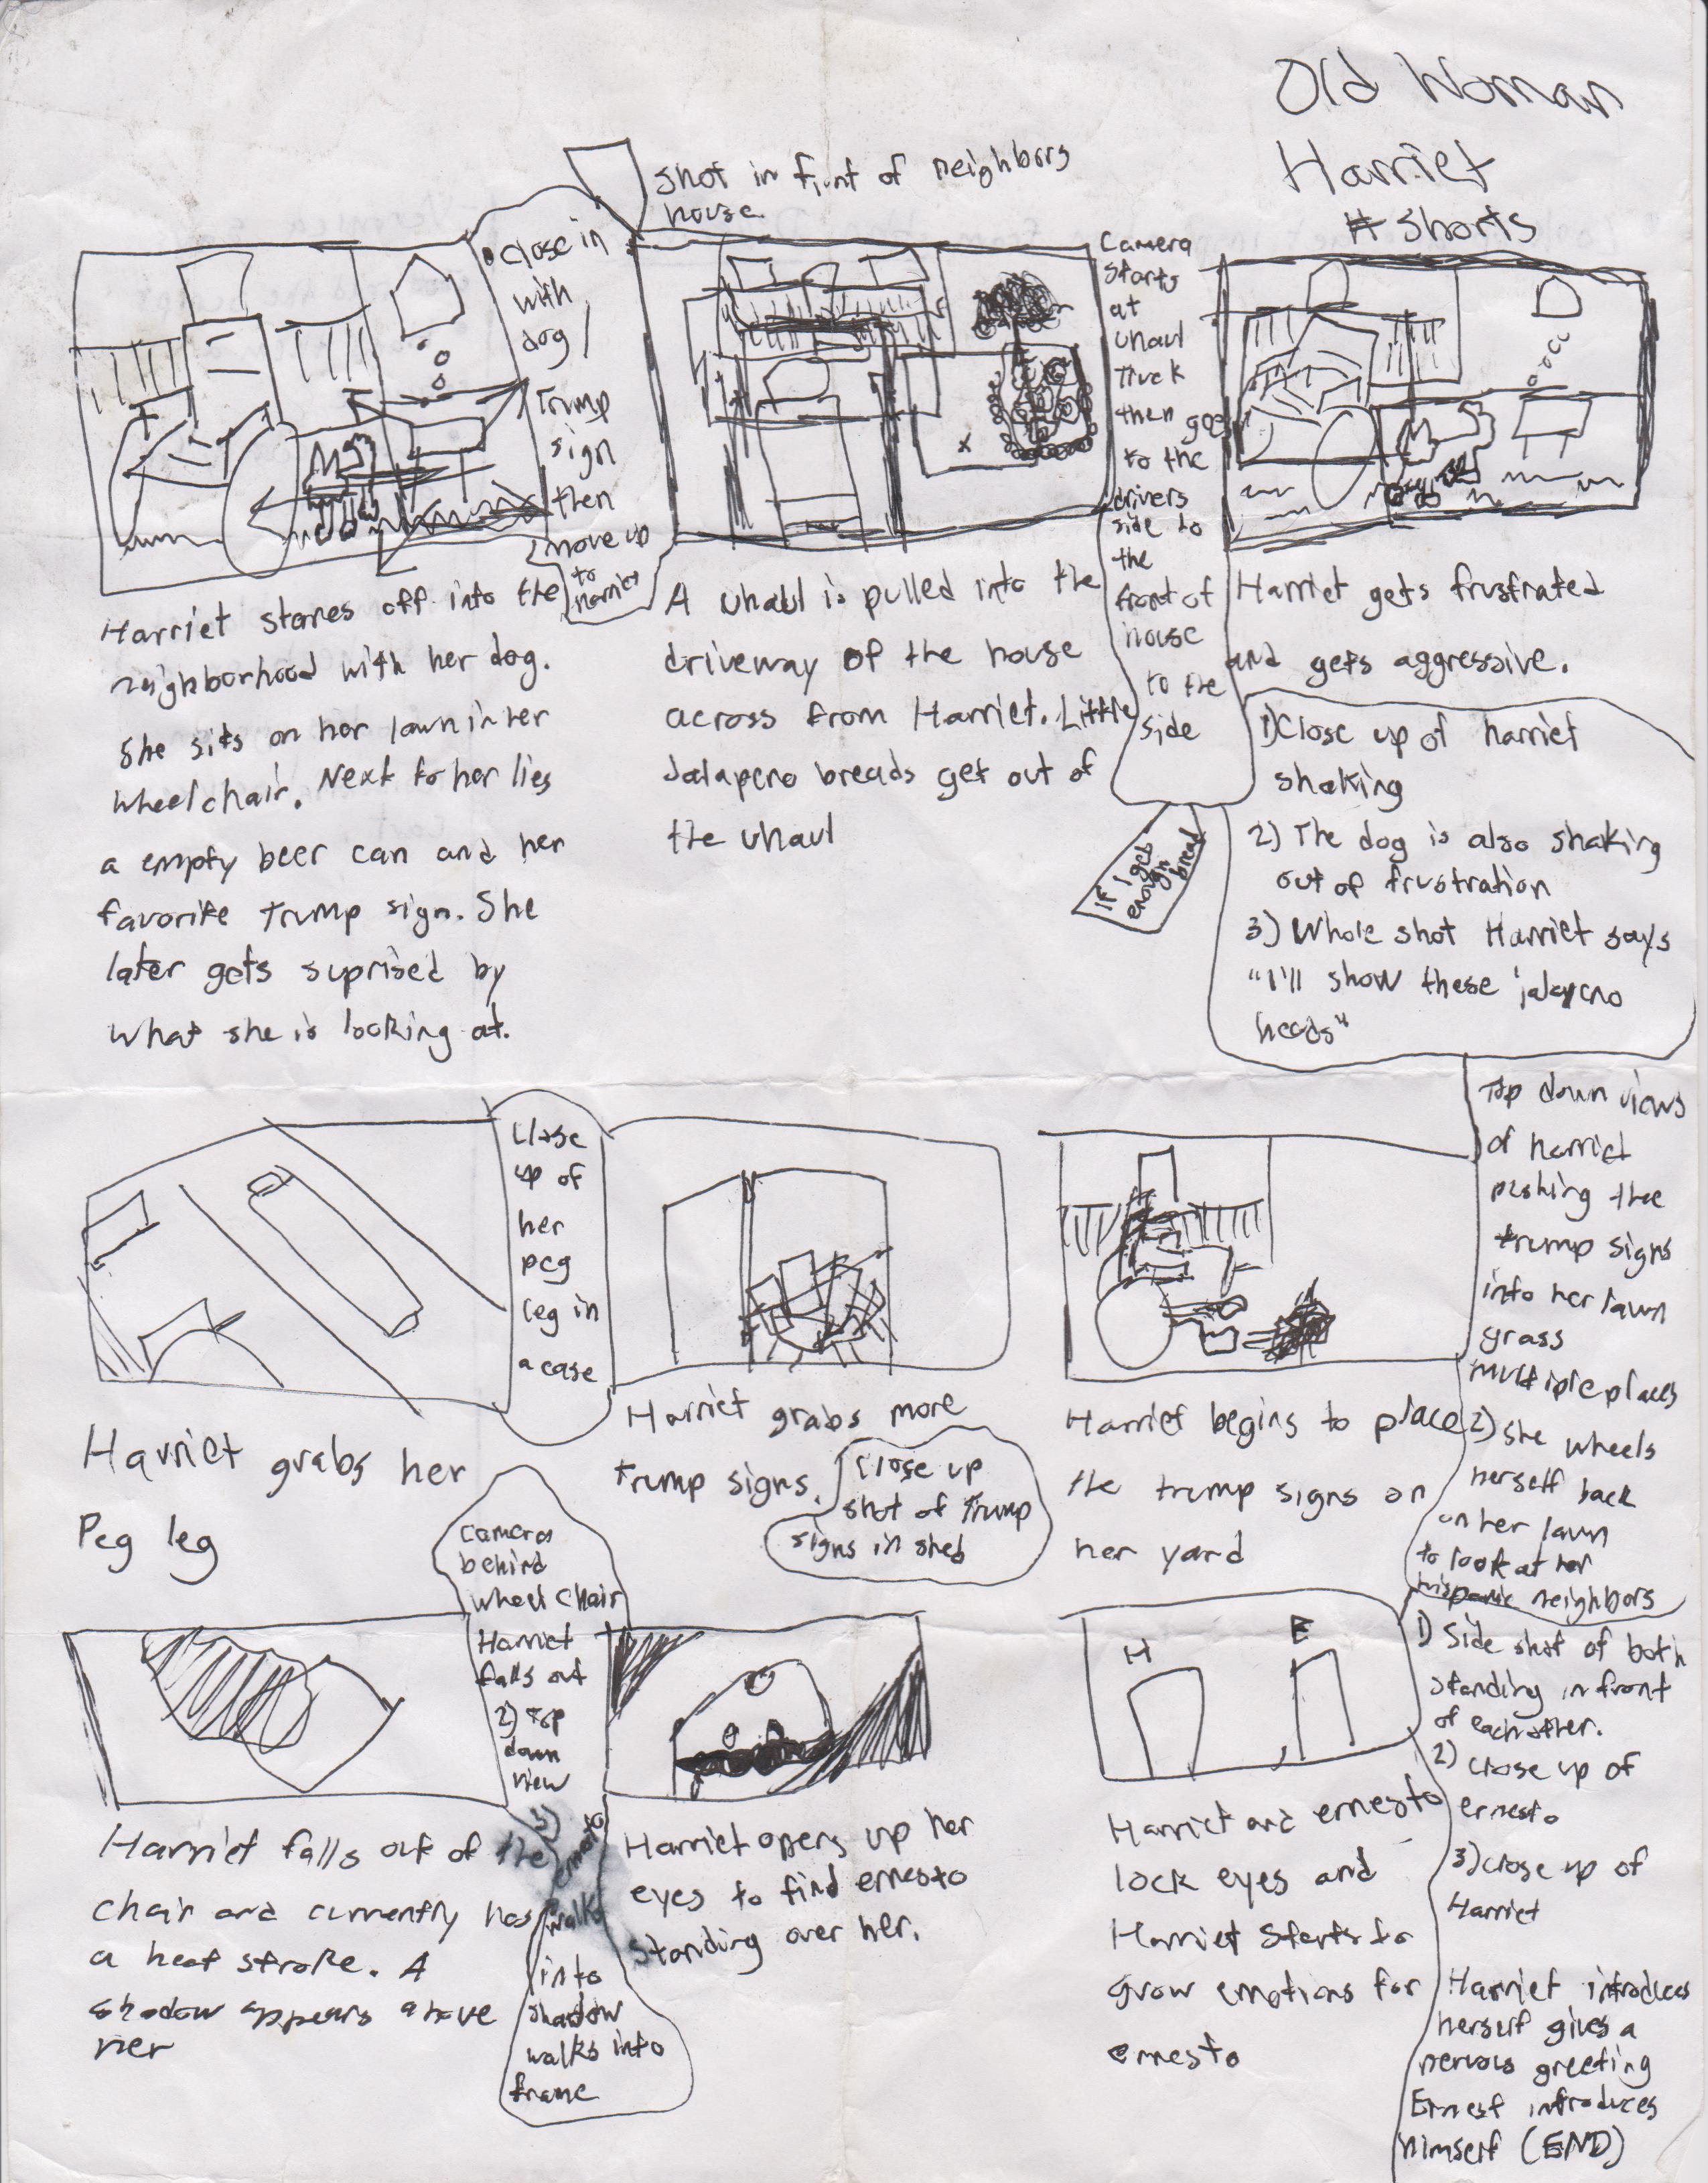 Old Woman
Harriet
# Shorts
shot in front of neighbors
house.
Close in
with
dog/
Trump
sign
then
move up
to
Harriet
Harriet stares off into the
neighborhood with her dog.
She sits on her lawn in her
wheelchair. Next to her lies
a empty beer can and her
favorite Trump sign. She
later gets suprised by
what she is looking at.
Camera
starts
at
uhaul
truck
then goes
to the
drivers
side to
the
front of
house
to the
side
A uhaul is pulled into the
driveway of the house
across from Harriet. Little
Jalapeno breads get out of
the uhaul
If I get
enough
bread
Harriet gets frustrated
and gets aggressive.
1) Close up of harriet
shaking
2) The dog is also shaking
out of frustration
3) Whole shot Harriet says
"I'll show these jalapeno
heads"
Close
up of
her
peg
leg in
a case
Harriet grabs her
Peg leg
Harriet grabs more
trump signs.
Close up
shot of Trump
signs in shed
Harriet begins to place
the trump signs on
her yard
Top down views
of harriet
pushing the
trump signs
into her lawn
grass
multiple places
2) She wheels
herself back
on her lawn
to look at her
hispanic neighbors
Camera
behind
wheel chair
Harriet
falls out
2) top
down
view
3)
ernesto
walks
into
shadow
walks into
frame
Harriet falls out of the
chair and currently has
a heat stroke. A
shadow appears above
her
Harriet opens up her
eyes to find ernesto
standing over her.
H E
Harriet and ernesto
lock eyes and
Harriet starts to
grow emotions for
ernesto
1) Side shot of both
standing in front
of each other.
2) close up of
ernesto
3) close up of
Harriet
Harriet introduces
herself gives a
nervous greeting
Ernest introduces
himself (END)